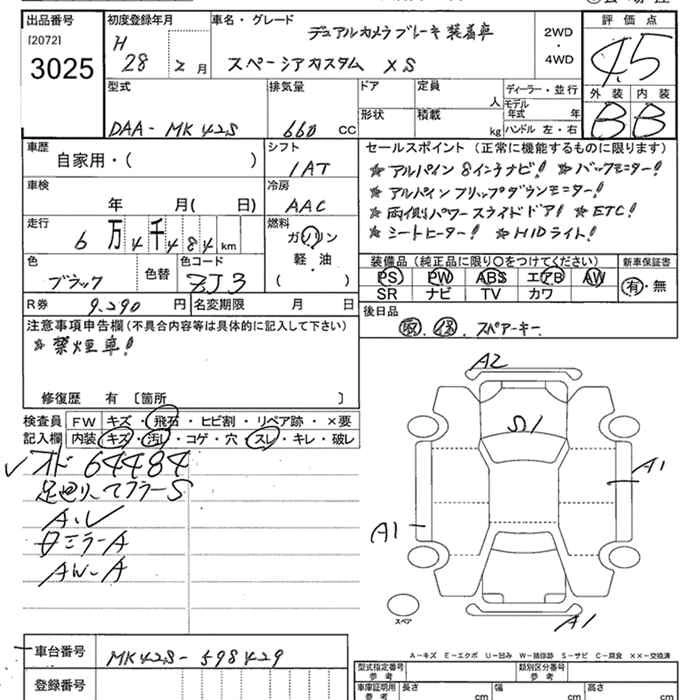 出品番号
[2072]
3025
初度登録年月
H 28 2 月
車名・グレード
デュアルカメラブレーキ装着車
スペーシアカスタム XS
2WD
・
4WD
評価点
4.5
外装 内装
B B
型式
DAA-MK42S
排気量
660 CC
ドア
形状
定員
人
積載
kg
ディーラー・並行
モデル年式 年
ハンドル 左・右
車歴
自家用・( )
シフト
IAT
車検
年 月( 日)
冷房
AAC
走行
6万4千484km
燃料
ガソリン
軽・油
( )
色
ブラック
色替
色コード
ZJ3
R券
9,290 円
名変期限 月 日
セールスポイント (正常に機能するものに限ります)
☆ アルパイン 8インチナビ! ☆ バックモニター!
☆ アルパイン フリップダウンモニター!
☆ 両側パワースライドドア! ☆ ETC!
☆ シートヒーター! ☆ HIDライト!
装備品 (純正品に限り○をつけてください)
PS PW ABS エアB AW
SR ナビ TV カワ
新車保証書
有・無
後日品
取 保 . スペアーキー.
注意事項申告欄 (不具合内容等は具体的に記入して下さい)
☆ 禁煙車!
修復歴 有 〔箇所 〕
検査員
記入欄
FW キズ・飛石・ヒビ割・リペア跡・×要
内装 キズ・汚レ・コゲ・穴・スレ・キレ・破レ
✓オド 64484
足廻り〜マフラーS
A.V
日ミラーA
AW-A
A2
S1
A1
A1
A1
スペア
A-キズ E-エクボ U-凹み W-補修跡 S-サビ C-腐食 XX-交換済
車台番号
MK42S-598429
登録番号
型式指定番号
参考
類別区分番号
参考
車庫証明用
参考
長さ cm
幅 cm
高さ cm